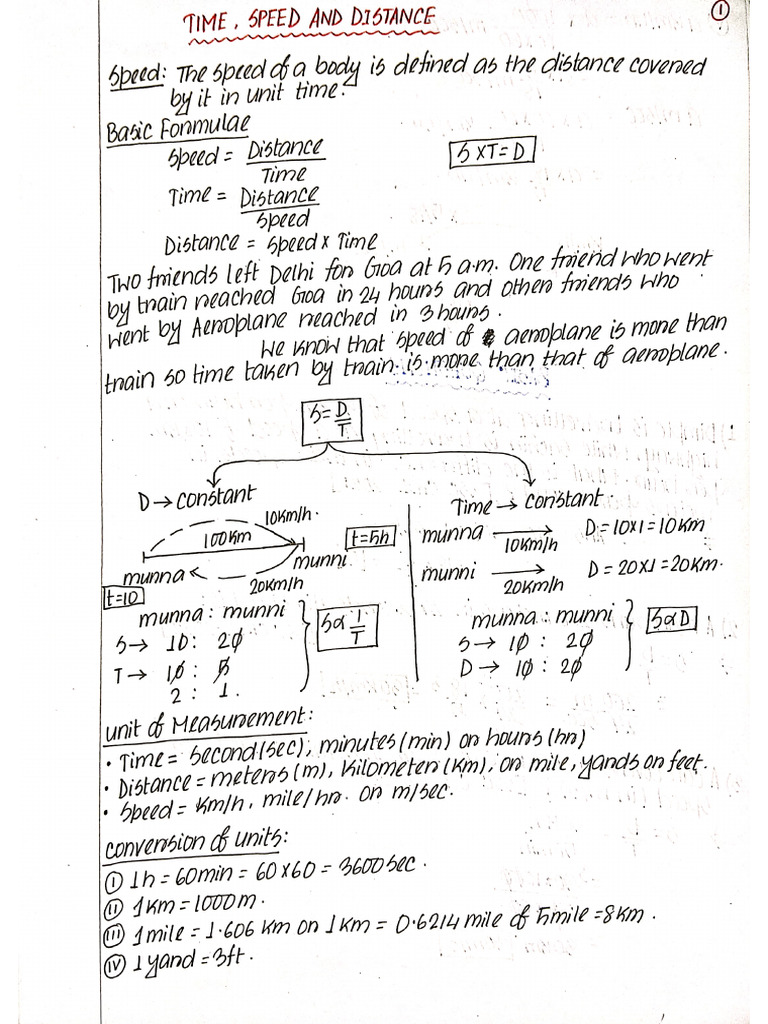 TIME, SPEED AND DISTANCE
1
Speed: The speed of a body is defined as the distance covered
by it in unit time.
Basic Formulae
Speed = Distance / Time
S×T=D
Time = Distance / Speed
Distance = speed × Time
Two friends left Delhi for Goa at 5 a.m. One friend who went
by train reached Goa in 24 hours and other friends who
went by Aeroplane reached in 3 hours.
We know that speed of aeroplane is more than
train so time taken by train is more than that of aeroplane.
S = D/T
D → constant
10km/h.
100km
t=5h
munna
munni
20km/h
t=10
munna : munni
S → 10 : 20
T → 10 : 5
2 : 1.
S α 1/T
Time → constant.
munna → 10km/h D = 10×1 = 10km
munni → 20km/h D = 20×1 = 20km.
munna : munni
S → 10 : 20
D → 10 : 20
S α D
unit of Measurement:
• Time = second (sec), minutes (min) or hours (hr)
• Distance = meters (m), Kilometer (Km), or mile, yards or feet.
• Speed = Km/h, mile/hr. or m/sec.
conversion of units:
I 1h = 60min = 60×60 = 3600sec.
II 1Km = 1000m.
III 1mile = 1.606 km or 1Km = 0.6214 mile of 5mile = 8km.
IV 1yard = 3ft.